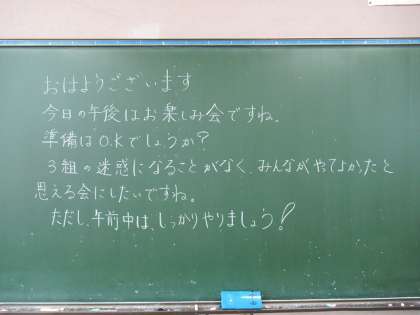 おはようございます
今日の午後はお楽しみ会ですね。
準備はO.Kでしょうか?
3組の迷惑になることがなく、みんながやてよかたと
思える会にしたいですね。
ただし、午前中は、しっかりやりましょう!